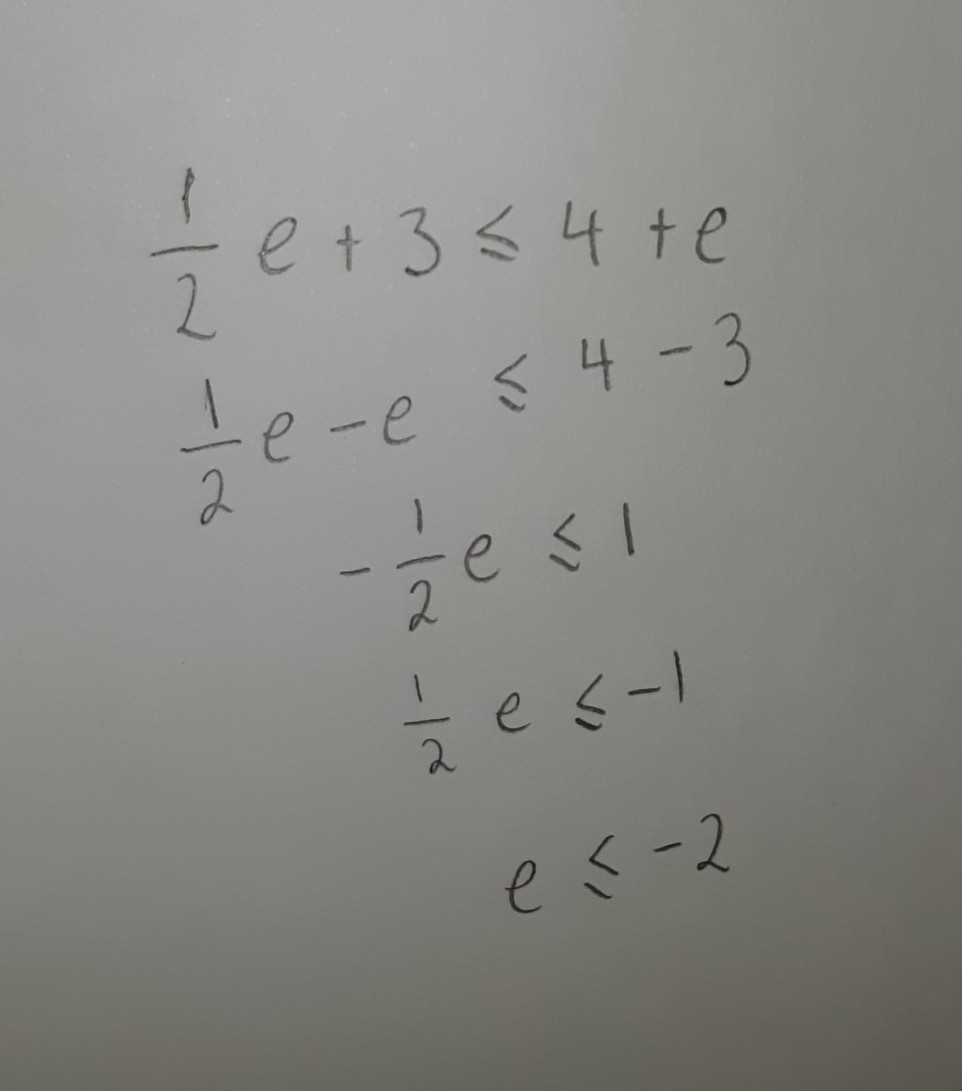 1/2 e + 3 ≤ 4 + e
1/2 e - e ≤ 4 - 3
- 1/2 e ≤ 1
1/2 e ≤ -1
e ≤ -2